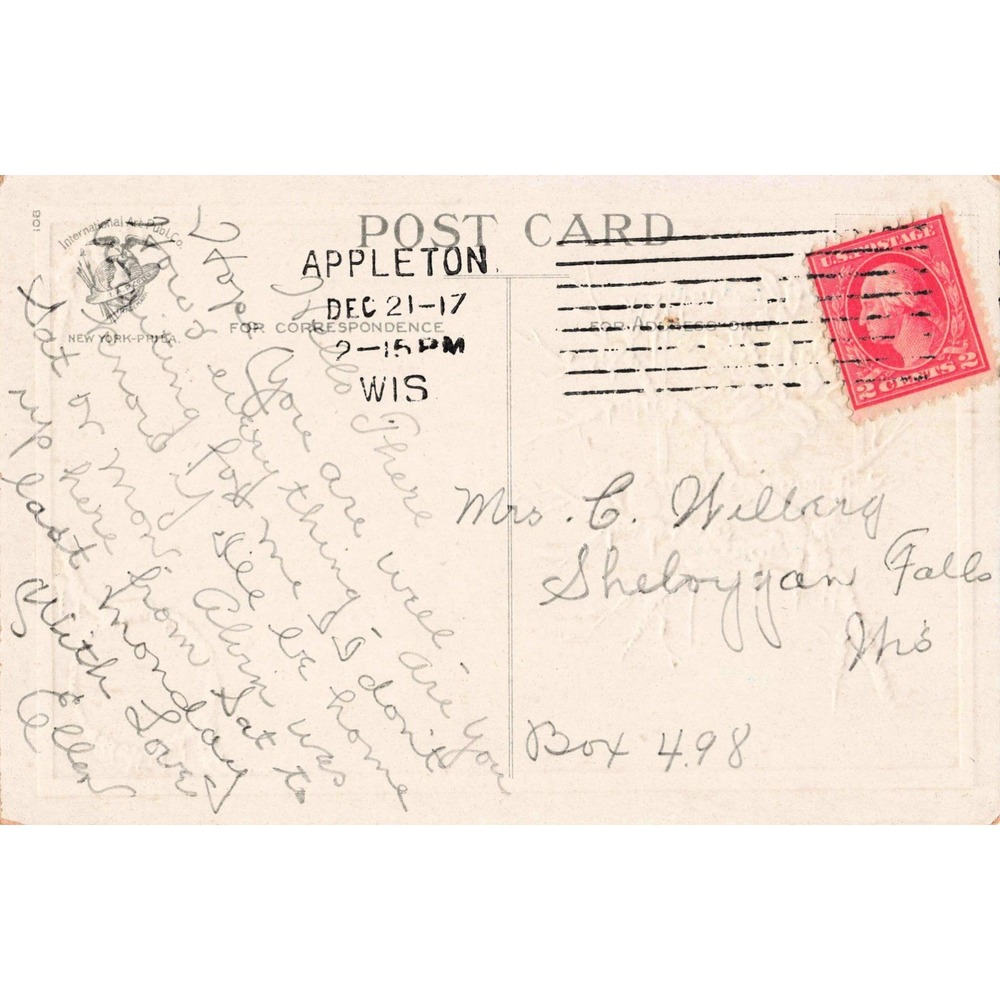 108
International Art Publ. Co.
NEW YORK-PHILA.
POST CARD
FOR CORRESPONDENCE
FOR ADDRESS ONLY
APPLETON.
DEC 21-17
2-15 PM
WIS
U.S. POSTAGE
2 CENTS 2
Hello There
I Hope You are well are you
every thing I don't
for me I'll be home
know if Alvin was
Sat or Mon from Sat to
up here last monday
With Love
Ellen
Mrs. C.
Sheboygan Falls
Wis
Box 498